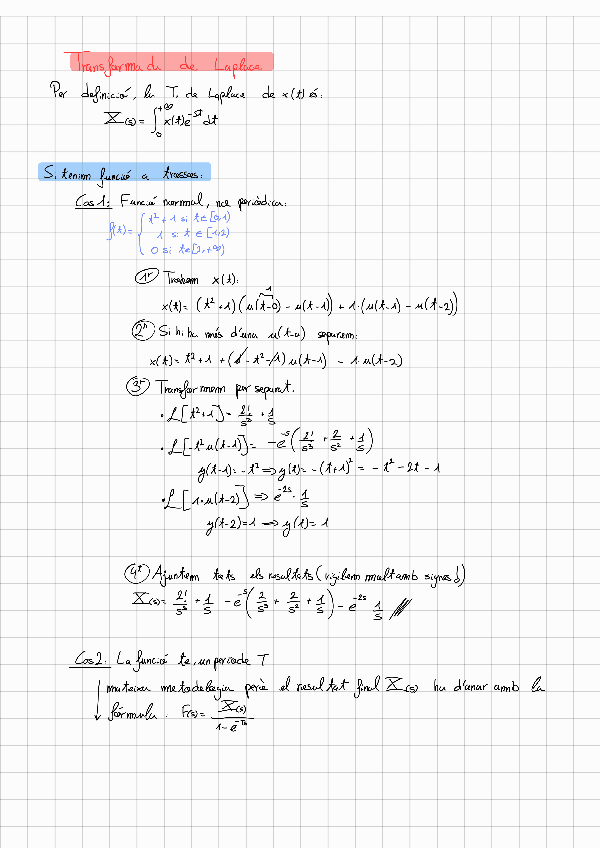 Transformada de Laplace
Per definició, la T. de Laplace de x(t) és:
X(s) = ∫₀^{+∞} x(t)e^{-st} dt
Si tenim funció a trossos:
Cas 1: Funció normal, no periòdica:
f(t) = { t² + 1 si t ∈ [0,1)
1 si t ∈ [1,2)
0 si t ∈ [2,+∞)
1r Trobem x(t):
1
x(t) = (t² + 1)(u(t-0) - u(t-1)) + 1·(u(t-1) - u(t-2))
2n Si hi ha més d'una u(t-a) separem:
x(t) = t² + 1 + (1 - t² - 1) u(t-1) - 1·u(t-2)
3r Transformem per separat.
• L[t²+1] = 2!/s³ + 1/s
• L[-t² u(t-1)] = -e^{-s} (2!/s³ + 2/s² + 1/s)
y(t-1) = -t² ⇒ y(t) = -(t+1)² = -t² - 2t - 1
• L[1·u(t-2)] ⇒ e^{-2s} · 1/s
y(t-2) = 1 ⇒ y(t) = 1
4t Ajuntem tots els resultats (vigilem mult amb signes!)
X(s) = 2!/s³ + 1/s - e^{-s} (2/s³ + 2/s² + 1/s) - e^{-2s} 1/s
Cas 2: La funció té un període T
mateixa metodologia però el resultat final X(s) ha d'anar amb la
fórmula: F(s) = X(s)/(1 - e^{-Ts})